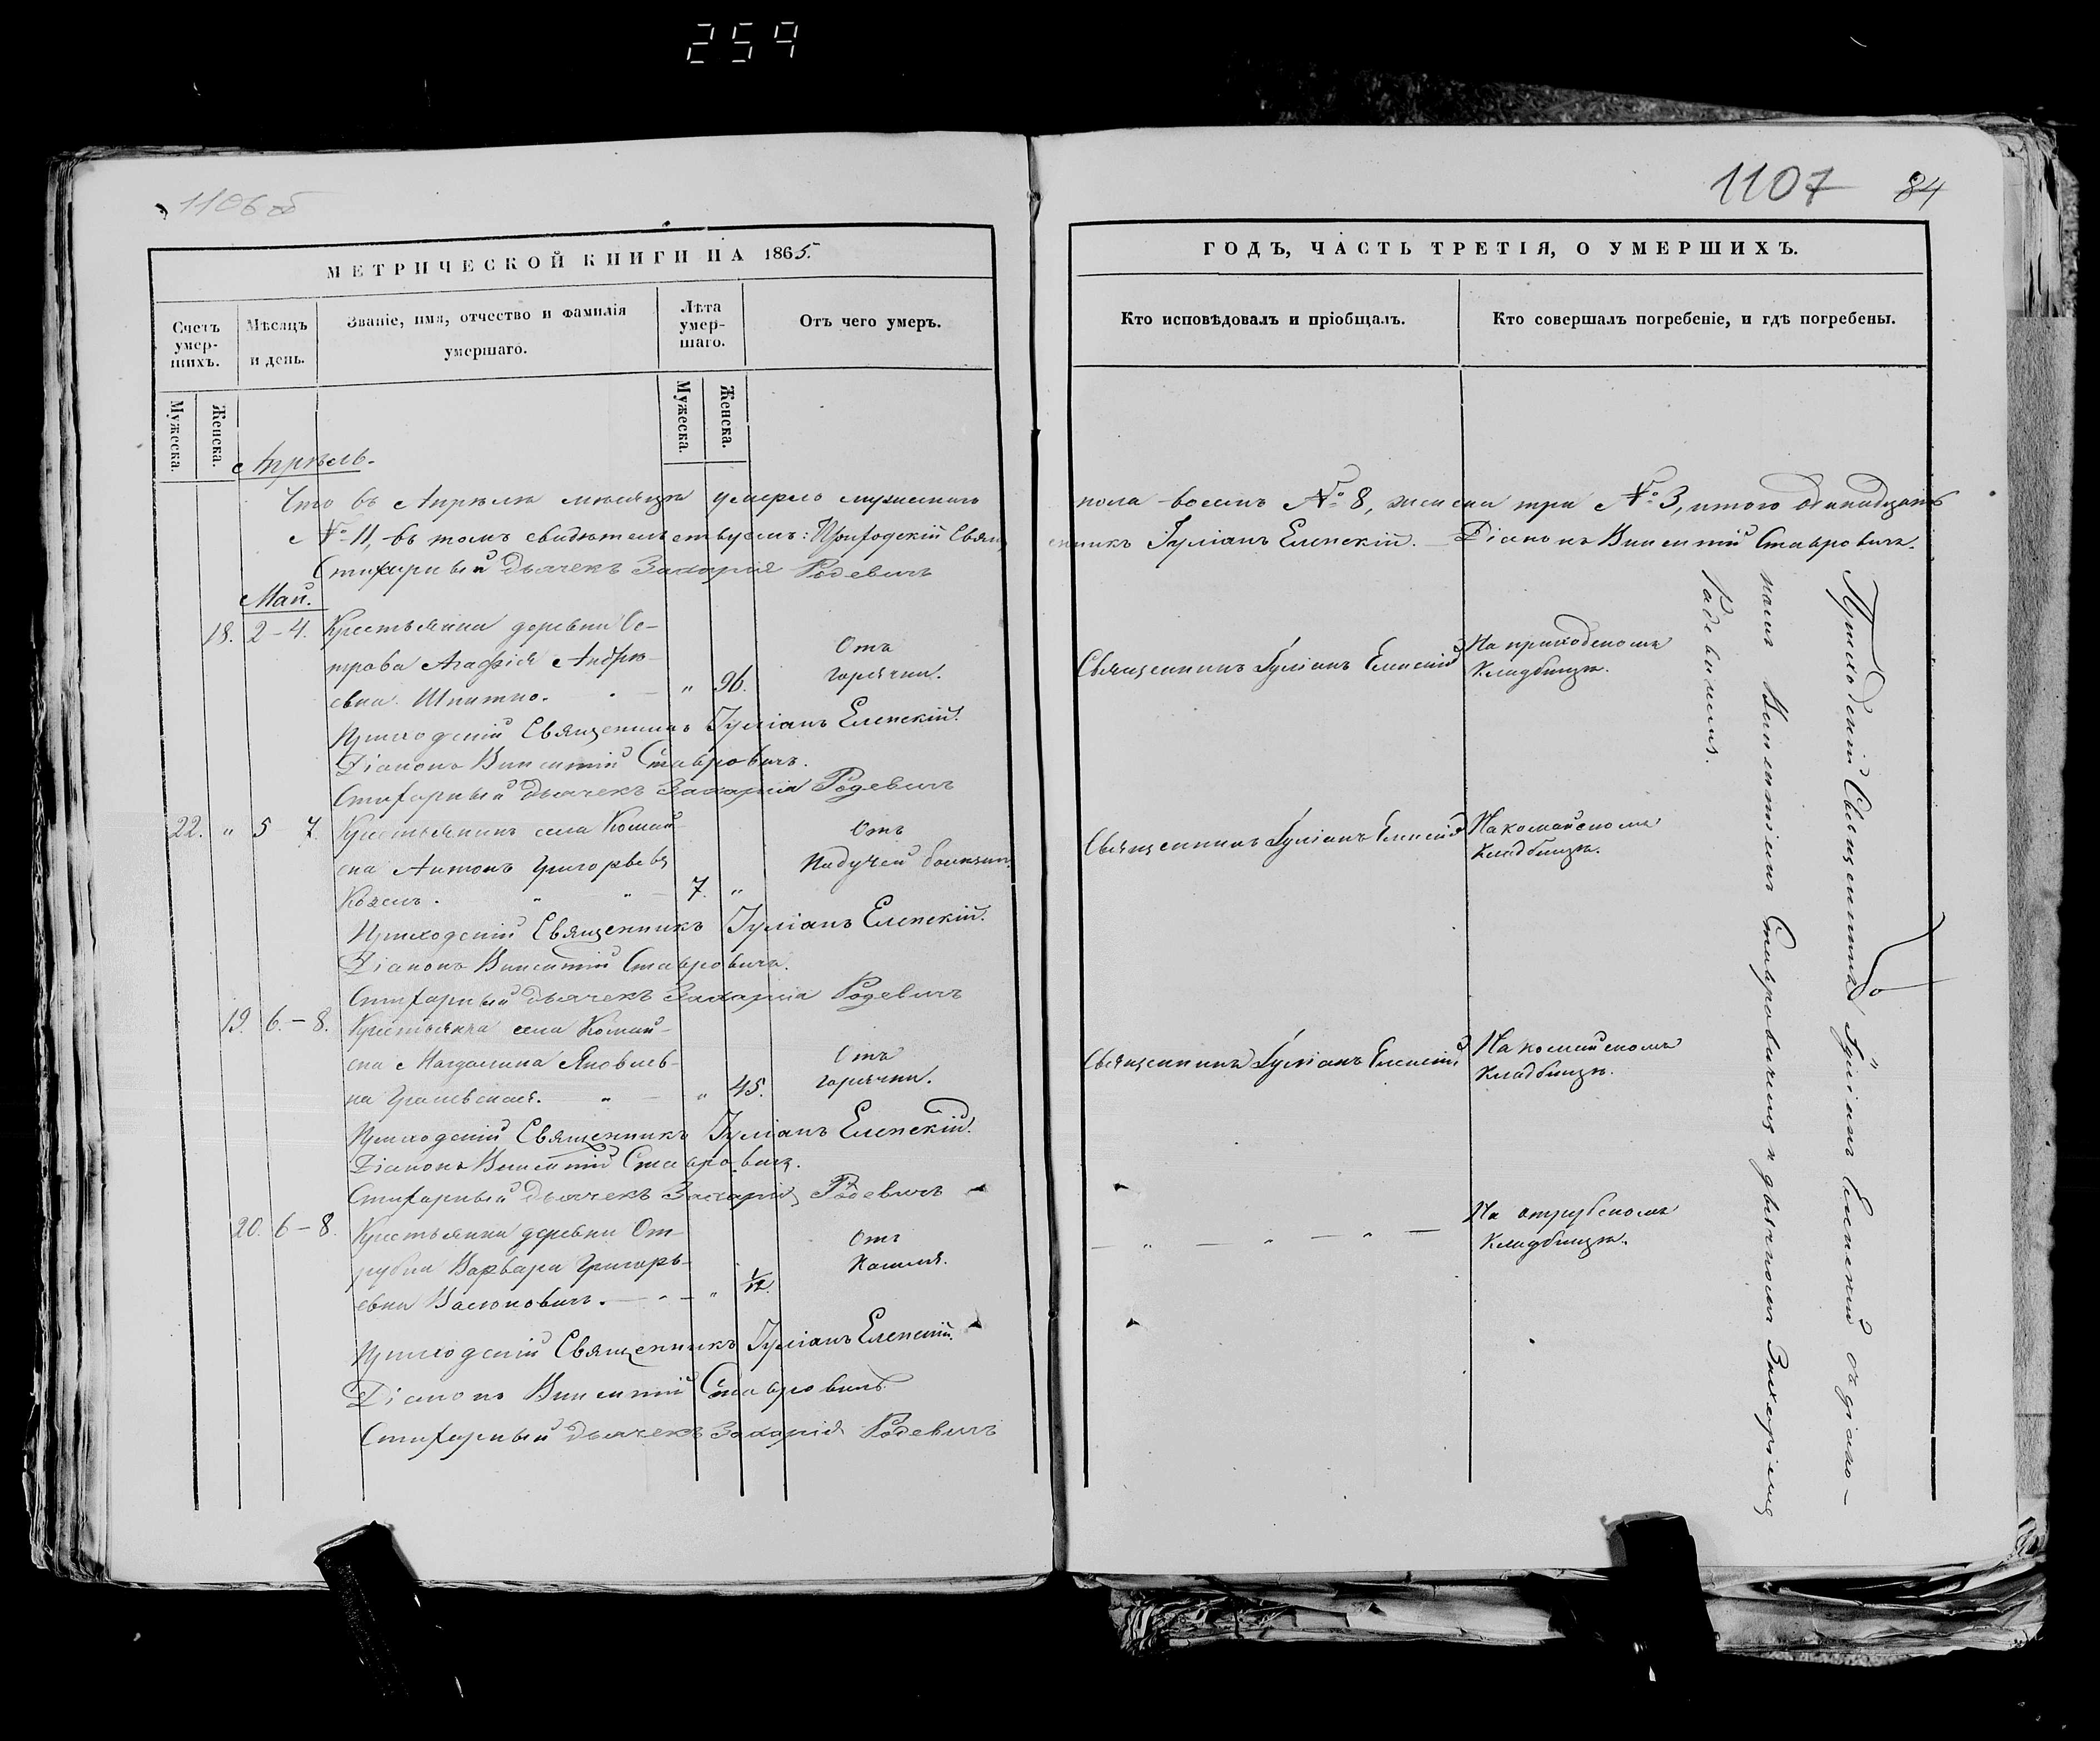 259
1106 об
1107 84
МЕТРИЧЕСКОЙ КНИГИ НА 1865.
Счетъ умер-шихъ.
Мѣсяцъ и день.
Званіе, имя, отчество и фамилія умершаго.
Лѣта умер-шаго.
Отъ чего умеръ.
Мужеска.
Женска.
Мужеска.
Женска.
Апрѣль.
Что въ Апрѣлѣ мѣсяцѣ умерло мужескаго
№ 11, въ томъ свидѣтельствуемъ: Приходскій Свящ
Стихарный Дьячекъ Захарія Родевичъ
Май.
18. 2-4. Крестьянка деревни Ос-
трова Агафія Андре-
евна Шпитко. " 96. Отъ горячки.
Приходскій Священникъ Іуліанъ Еленскій.
Діаконъ Викентій Ставровичъ.
Стихарный Дьячекъ Захарія Родевичъ
22. " 5 7. Крестьянинъ села Комай-
ска Антонъ Григорьевъ
Козелъ. 7. " Отъ Падучей болѣзни.
Приходскій Священникъ Іуліанъ Еленскій.
Діаконъ Викентій Ставровичъ.
Стихарный Дьячекъ Захарія Родевичъ
19. 6.-8. Крестьянка села Комай-
ска Магдалина Яковлев-
на " 45. Отъ горячки.
Приходскій Священникъ Іуліанъ Еленскій.
Діаконъ Викентій Ставровичъ.
Стихарный Дьячекъ Захарія Родевичъ
20. 6-8. Крестьянка деревни От-
рубка Варвара Григорь-
евна Васюковичъ. " 1/12. Отъ Кашля.
Приходскій Священникъ Іуліанъ Еленскій.
Діаконъ Викентій Ставровичъ
Стихарный Дьячекъ Захарія Родевичъ
ГОДЪ, ЧАСТЬ ТРЕТІЯ, О УМЕРШИХЪ.
Кто исповѣдовалъ и пріобщалъ.
Кто совершалъ погребеніе, и гдѣ погребены.
пола восемь № 8, женска три № 3, итого одинадцать
енникъ Іуліанъ Еленскій. Діаконъ Викентій Ставровичъ.
Священникъ Іуліанъ Еленскій
На приходскомъ
Кладбищѣ.
Священникъ Іуліанъ Еленскій
На комайскомъ
Кладбищѣ.
Священникъ Іуліанъ Еленскій
На комайскомъ
Кладбищѣ.
— " — " — " —
На отрубскомъ
Кладбищѣ.
Приходскій Священникъ Іуліанъ Еленскій съ діако-
номъ Викентіемъ Ставровичемъ и дьячкомъ Захаріемъ
Родевичемъ.